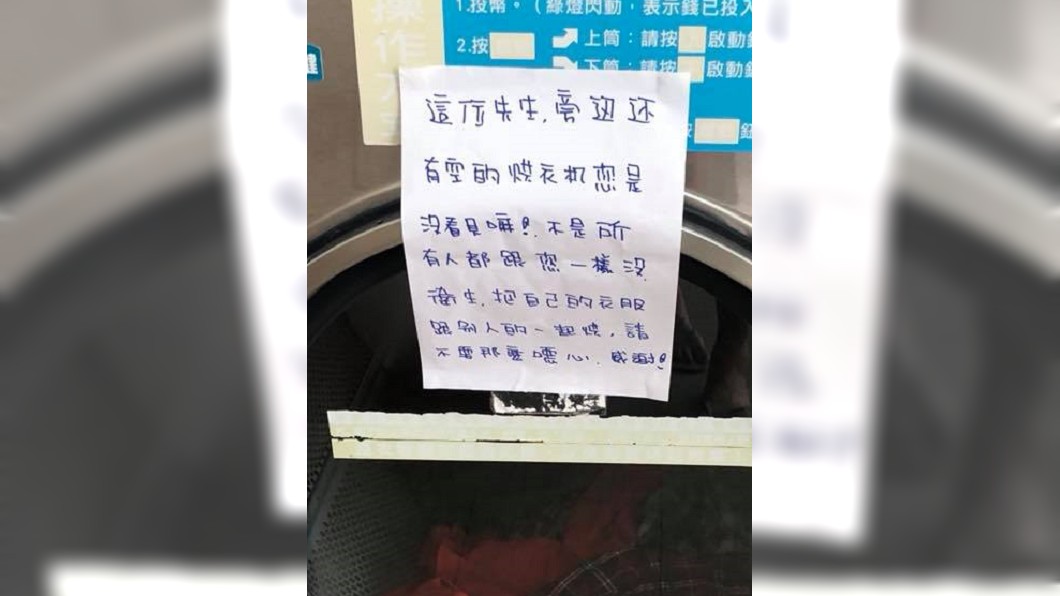 操作方
1.投幣。(綠燈閃動,表示錢已投入
2.按
上筒:請按 啟動鈕
下筒:請按 啟動鈕
按 鈕
這位先生,旁边还
有空的烘衣机您是
沒看見嘛!不是所
有人都跟您一樣沒
衛生,把自己的衣服
跟別人的一起烘,請
不要那麼噁心,感謝!